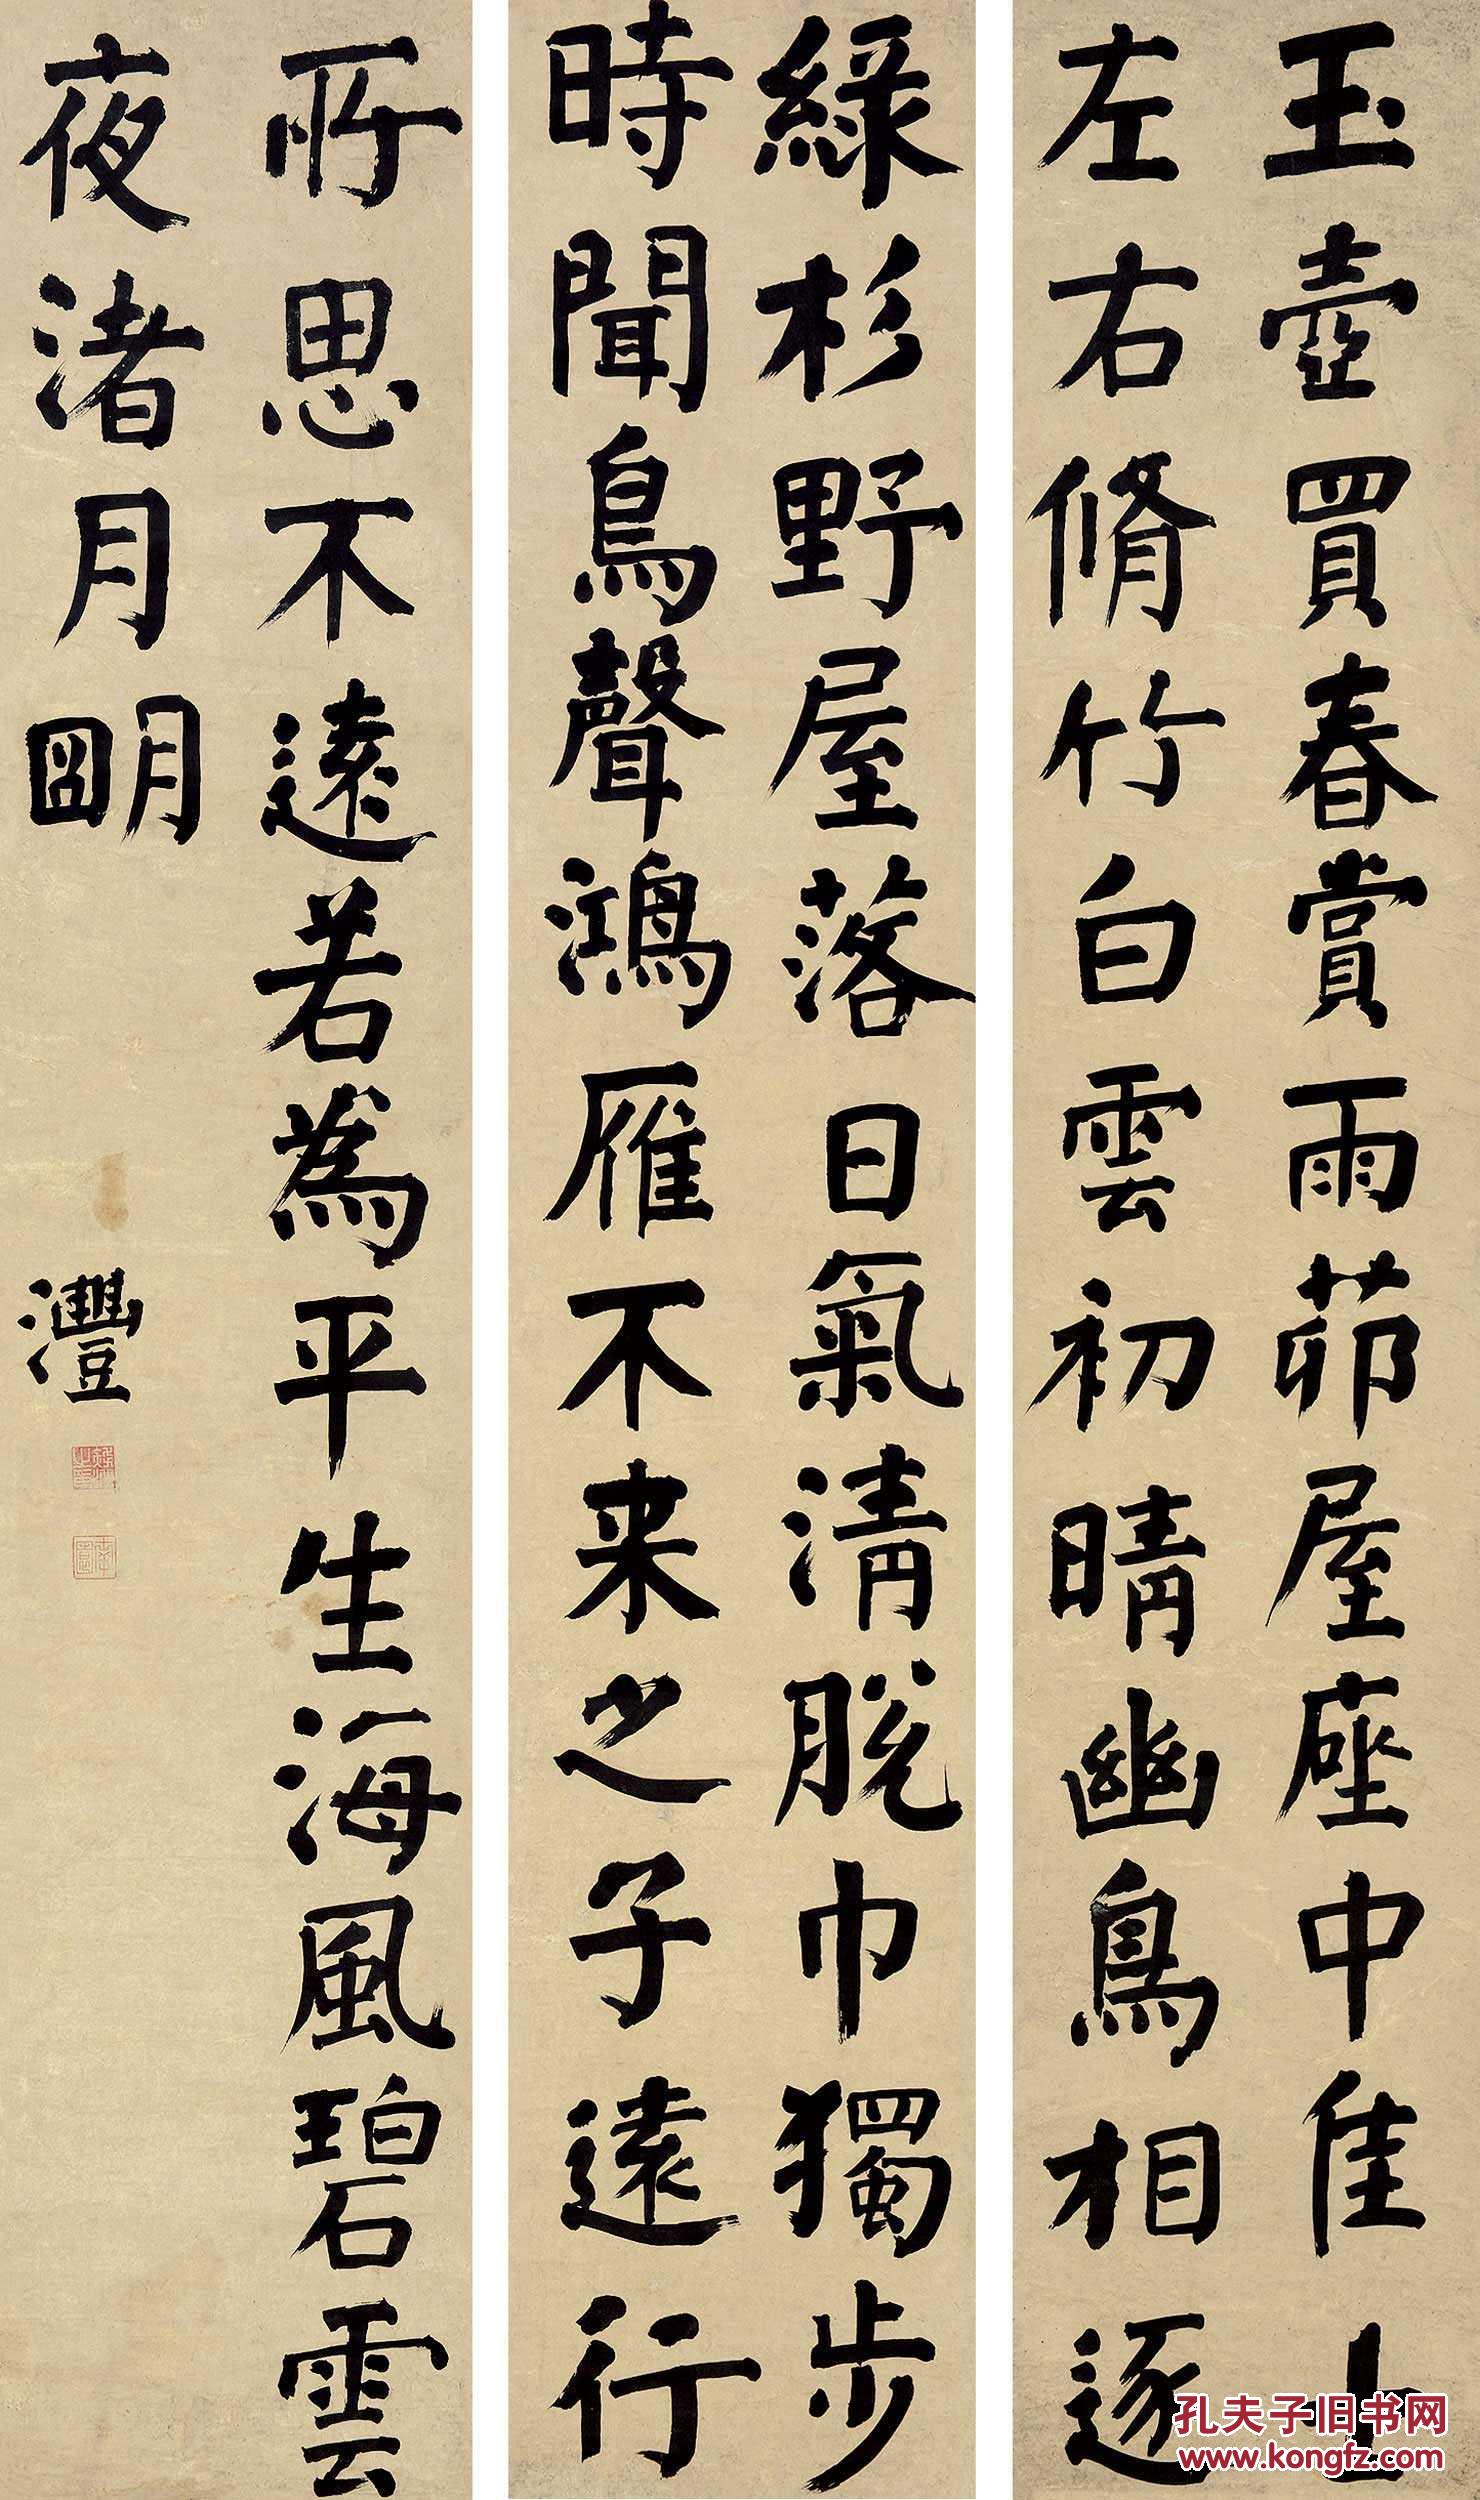 玉壺買春賞雨茆屋座中佳士
左右脩竹白雲初晴幽鳥相逐
綠杉野屋落日氣清脫巾獨步
時聞鳥聲鴻雁不来之子遠行
所思不遠若為平生海風碧雲
夜渚月明
灃
孔夫子旧书网
www.kongfz.com